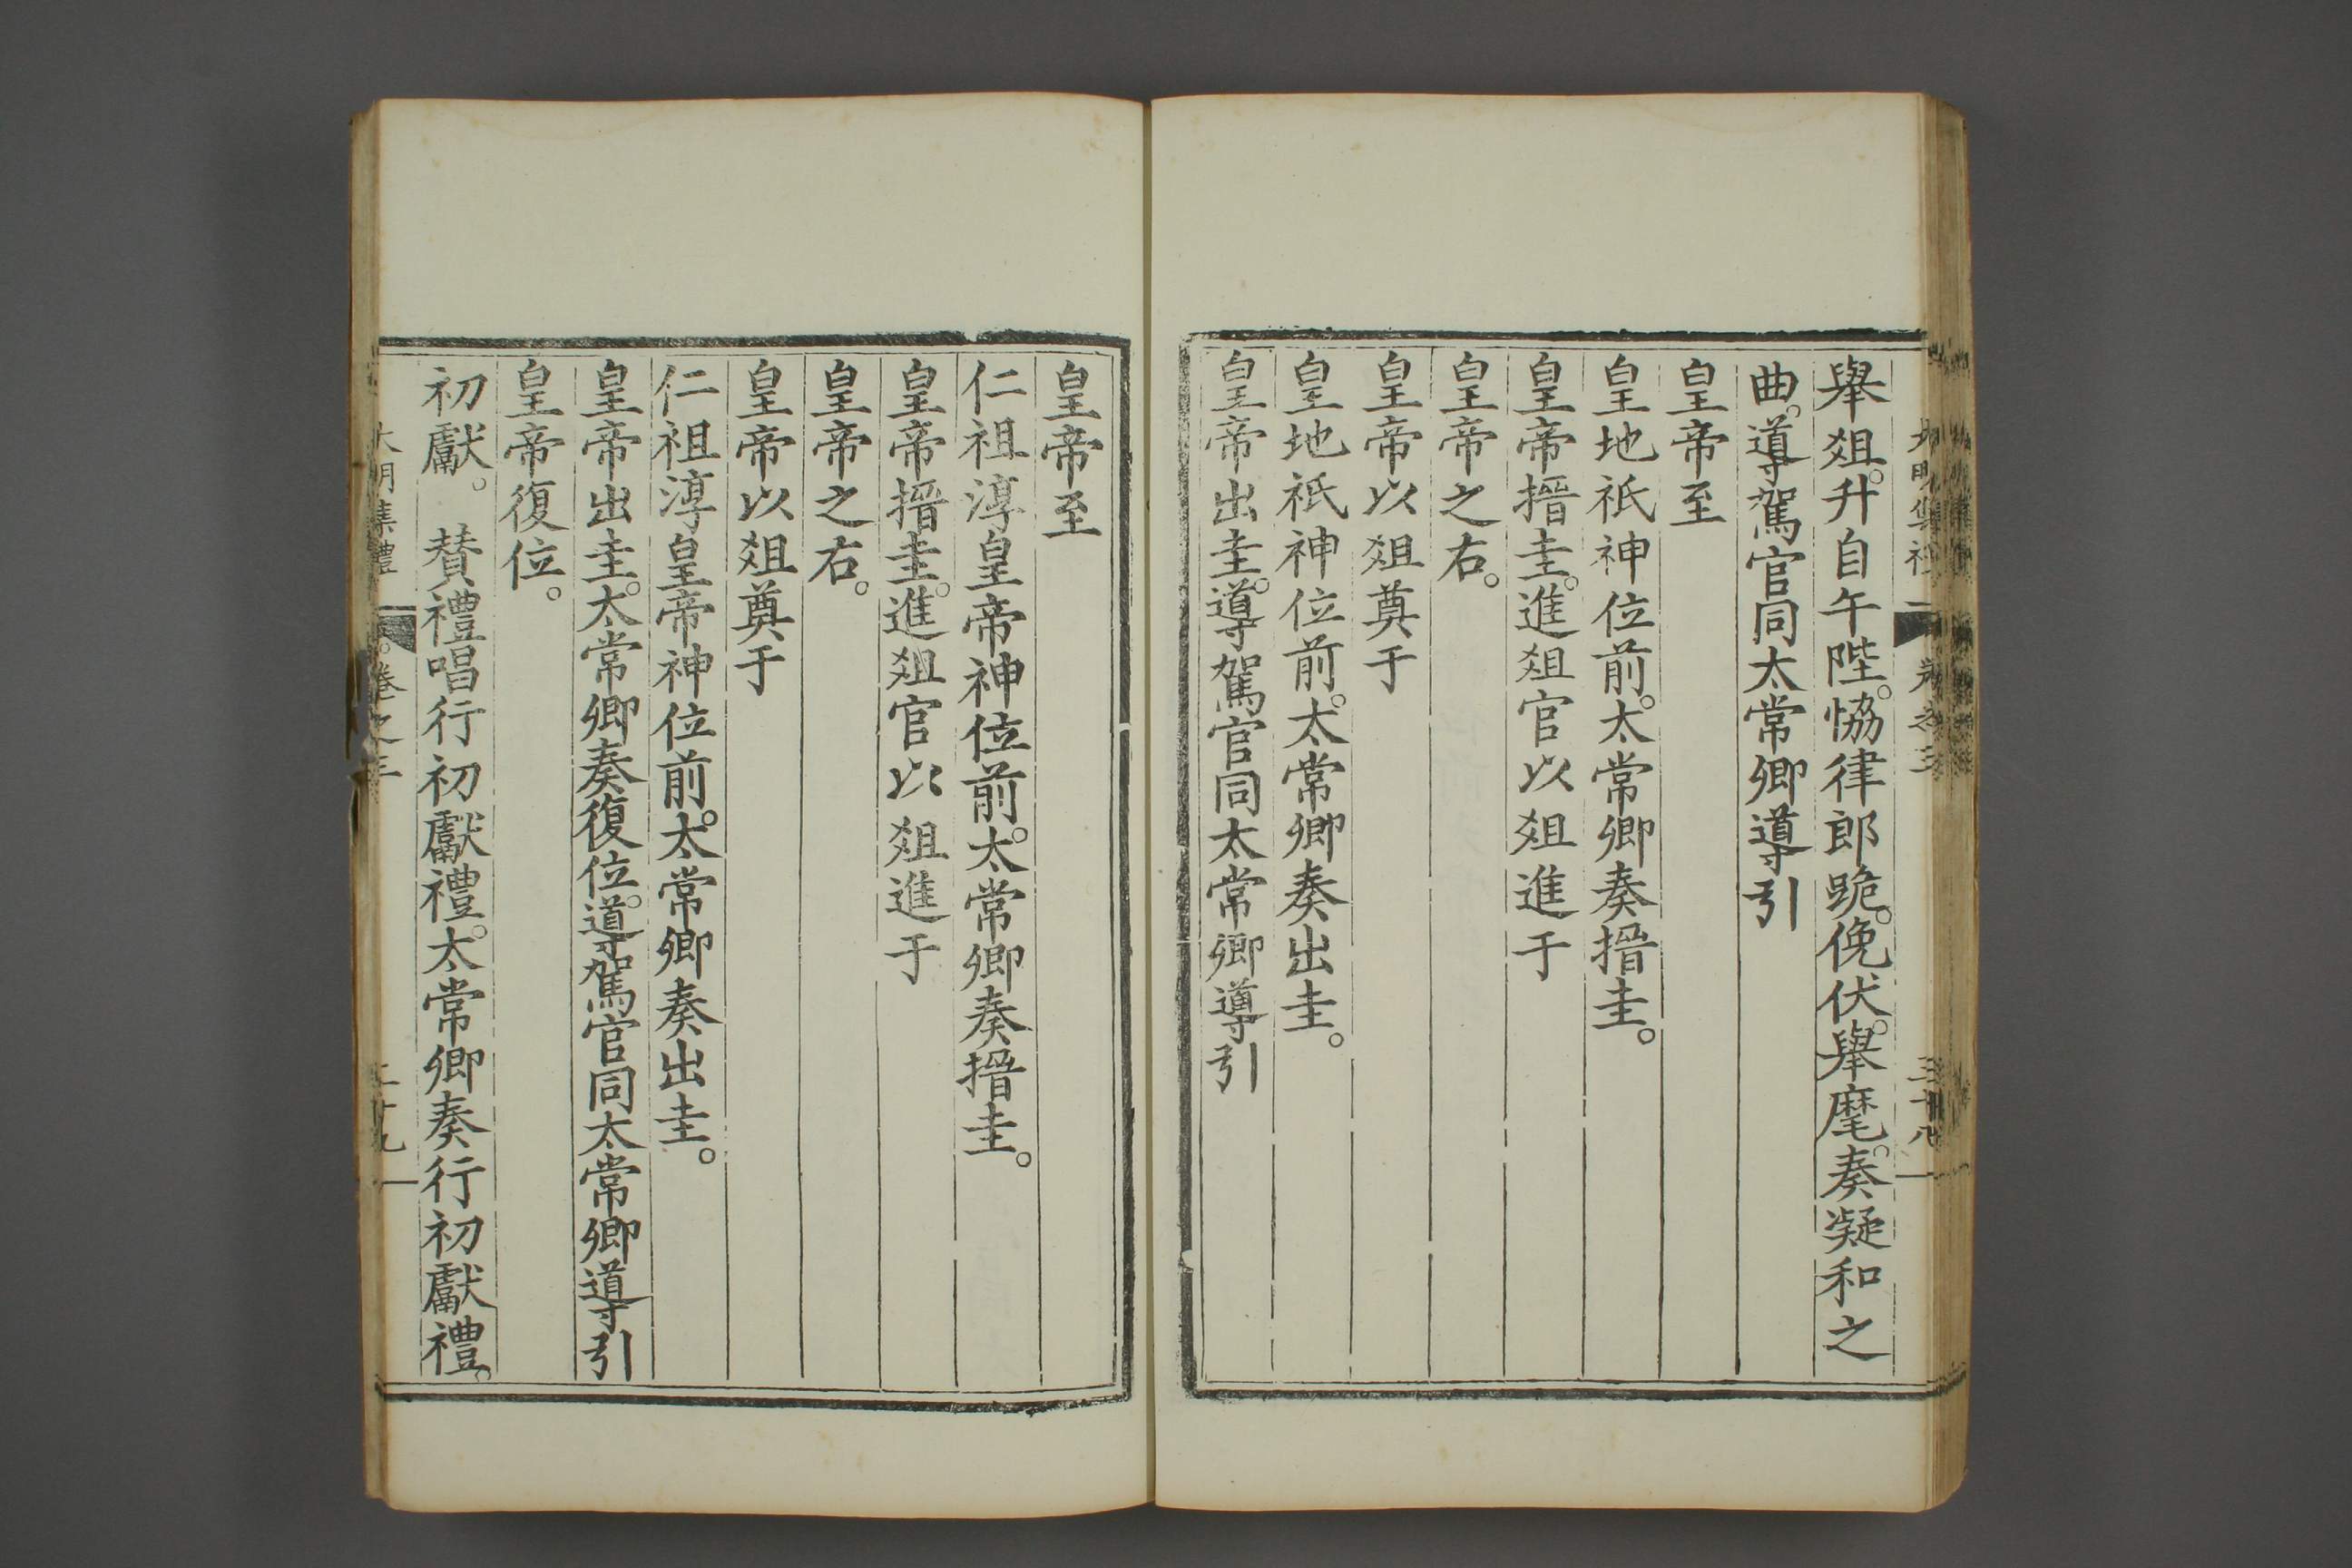 舉爼。升自午陛。恊律郎跪。俛伏。舉麾。奏凝和之
曲。導駕官同太常卿導引
皇帝至
皇地祇神位前。太常卿奏搢圭。
皇帝搢圭。進爼官以爼進于
皇帝之右。
皇帝以爼奠于
皇地祇神位前。太常卿奏出圭。
皇帝出圭。導駕官同太常卿導引
皇帝至
仁祖淳皇帝神位前。太常卿奏搢圭。
皇帝搢圭。進爼官以爼進于
皇帝之右。
皇帝以爼奠于
仁祖淳皇帝神位前。太常卿奏出圭。
皇帝出圭。太常卿奏復位。導駕官同太常卿導引
皇帝復位。
初獻。 賛禮唱行初獻禮。太常卿奏行初獻禮。
大明集禮 卷之三